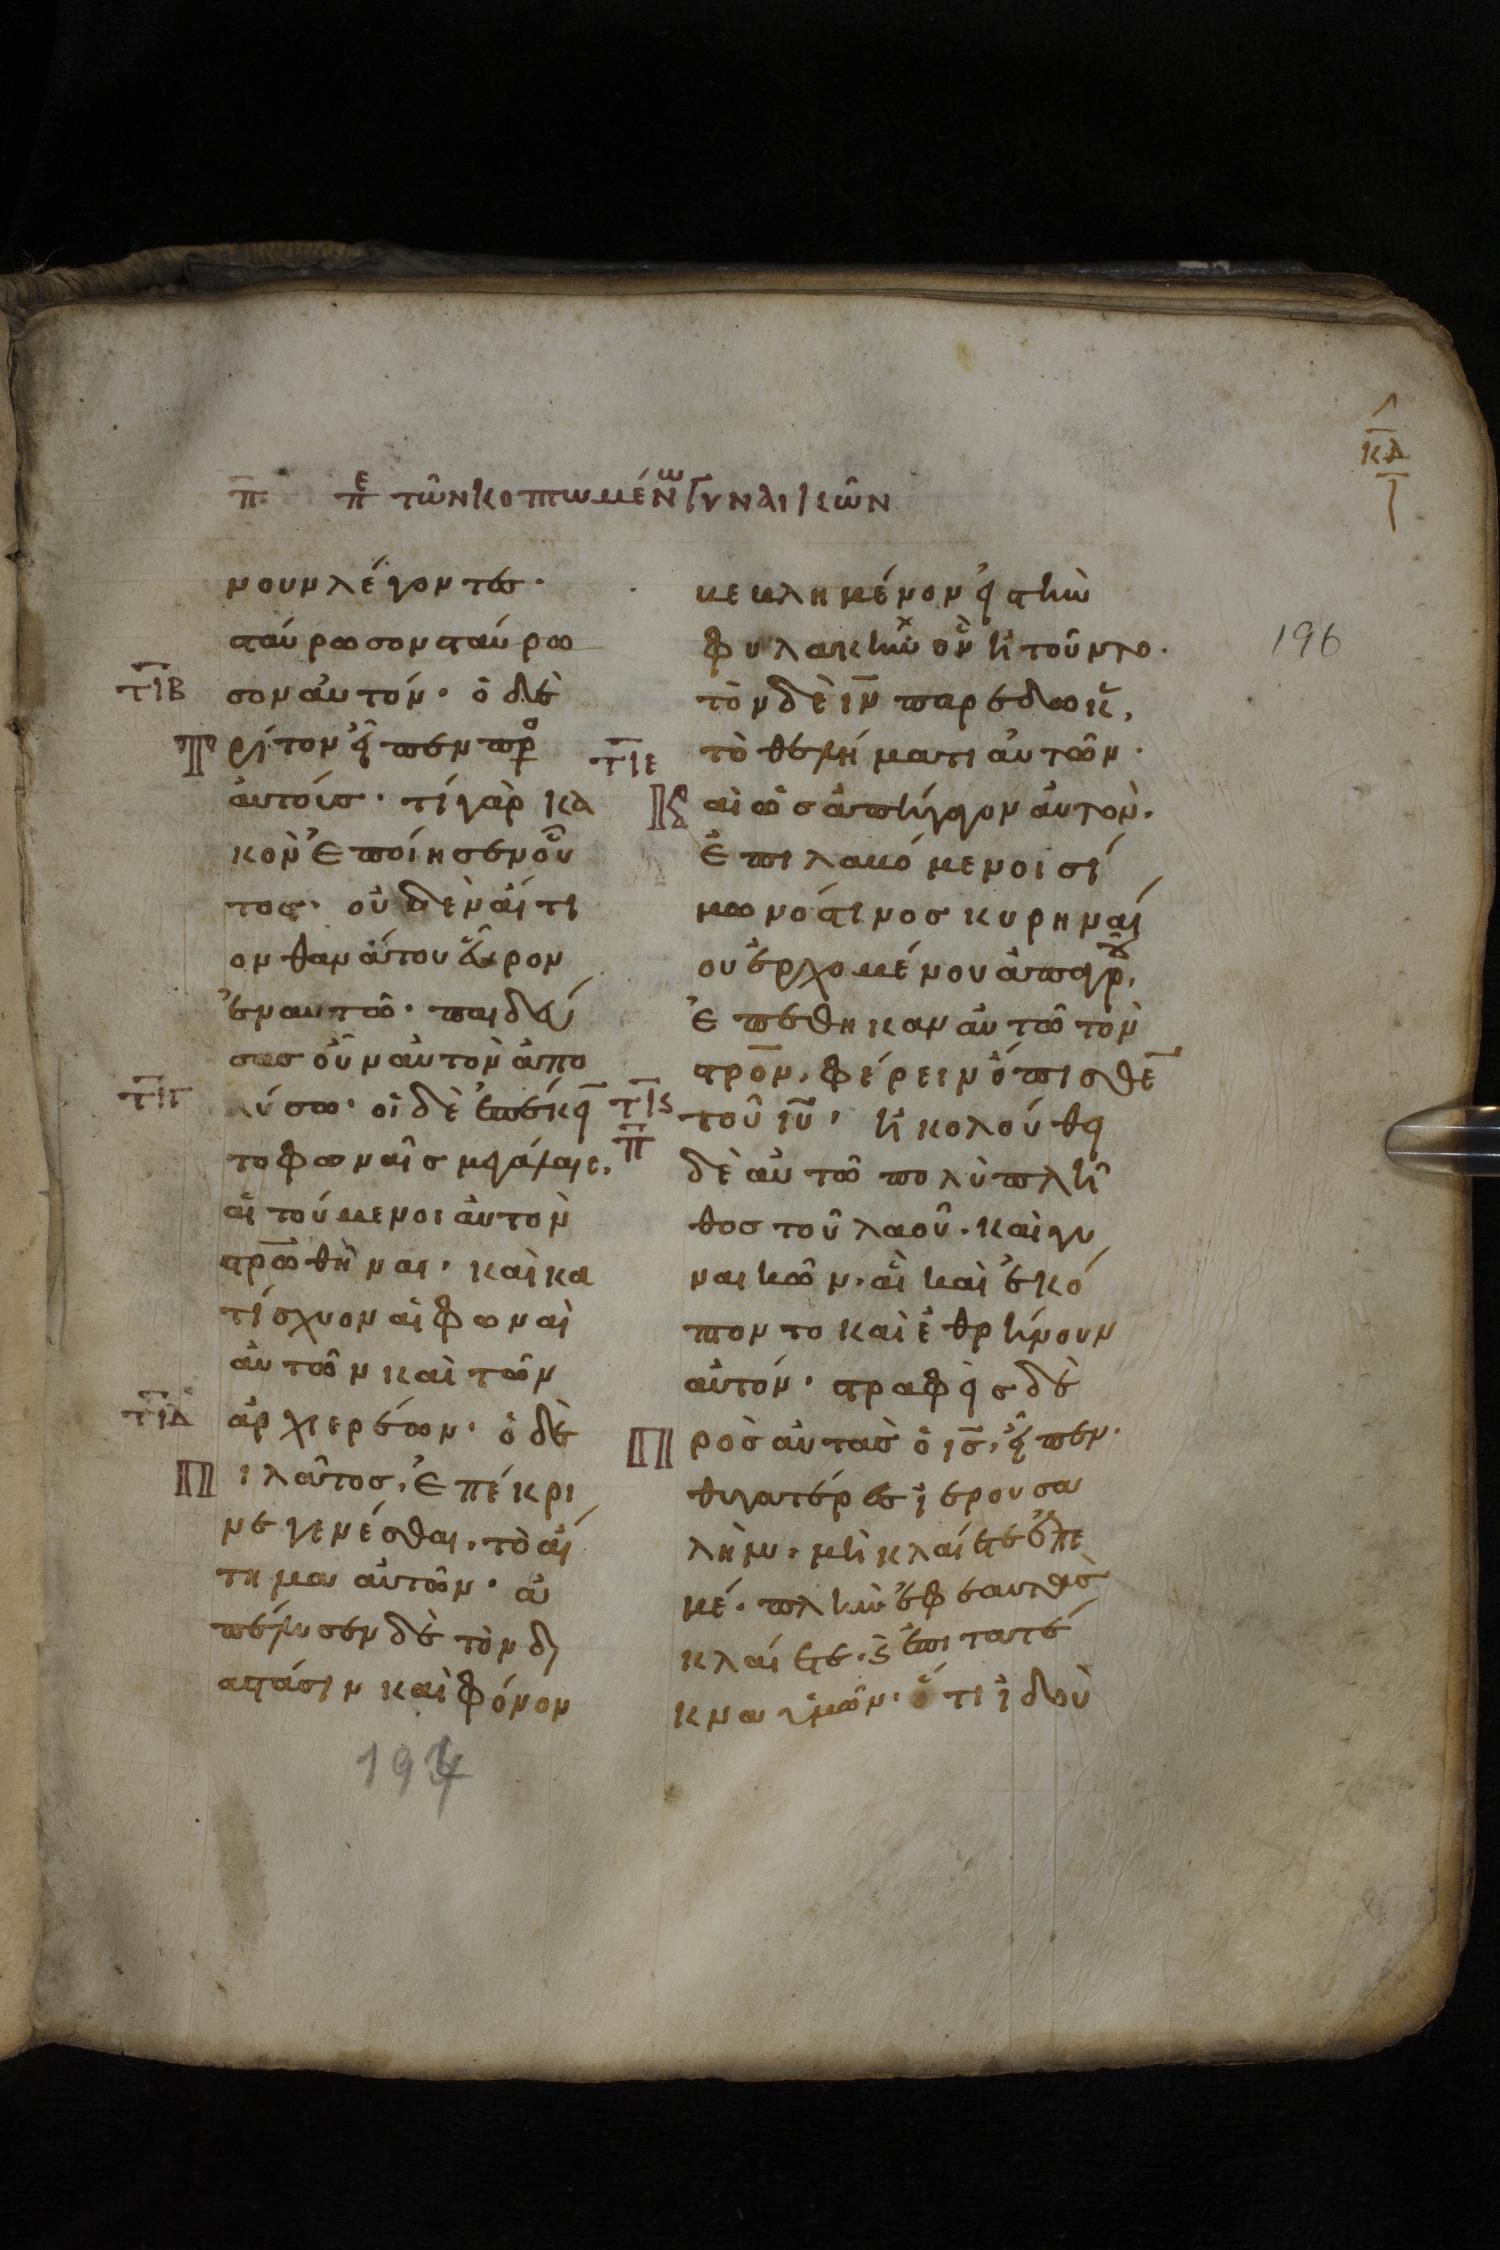 κδ
π πε τῶν κοπτωμένων γυναικῶν
196
νουν λέγοντες·
σταύρωσον σταύρω
τιβ
σον αὐτόν· ὁ δὲ
Τρίτον εἶπεν πρ
αὐτούς· τί γὰρ κα
κὸν ἐποίησεν οὗ
τος· οὐδὲν αἴτι
ον θανάτου εὗρον
ἐν αὐτῶ· παιδεύ
σας οὖν αὐτὸν ἀπο
τιγ
λύσω· οἱ δὲ ἐπέκειν
το φωναῖς μεγάλαις,
αἰτούμενοι αὐτὸν
στρωθῆναι· καὶ κα
τίσχυον αἱ φωναὶ
αὐτῶν καὶ τῶν
τιδ
ἀρχιερέων· ὁ δὲ
Πιλᾶτος, ἐπέκρι
νε γενέσθαι, τὸ αἴ
τημα αὐτῶν· ἀ
πέλυσεν δὲ τὸν δι
α στάσιν καὶ φόνον
194
βεβλημένον εἰς τὴν
φυλακὴν ὃν ἠτοῦντο·
τὸν δὲ ιν παρέδωκε,
τῶ θελήματι αὐτῶν·
τιε
Καὶ ὡς ἀπήγαγον αὐτὸν,
ἐπιλαβόμενοι σί
μωνός τινος κυρηναί
ου ἐρχομένου ἀπ αγρου,
ἐπέθηκαν αὐτῶ τὸν
στρον, φέρειν ὄπισθεν
τις
τοῦ ιυ, ἠκολούθει
π
δὲ αὐτῶ πολὺ πλῆ
θος τοῦ λαοῦ, καὶ γυ
ναικῶν, αἳ καὶ ἐκό
πτοντο καὶ ἐθρήνουν
αὐτόν· στραφεὶς δὲ
Πρὸς αὐτὰς ὁ ις, εἶπεν·
θυγατέρες ἱερουσα
λήμ, μὴ κλαίετε ἐπ ε
μέ· πλὴν ἐφ εαυτὰς
κλαίετε, κ ἐπι τὰ τέ
κνα ὑμῶν· ὅτι ἰδοὺ